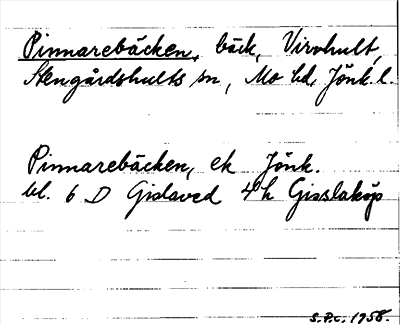 Pinnarebäcken, bäck, Virvhult,
Stengårdshults sn, Mo hd, Jönk. l.
Pinnarebäcken, ek Jönk.
bl. 6 D Gislaved 4 h Gisslaköp
S.P.C. 1958.